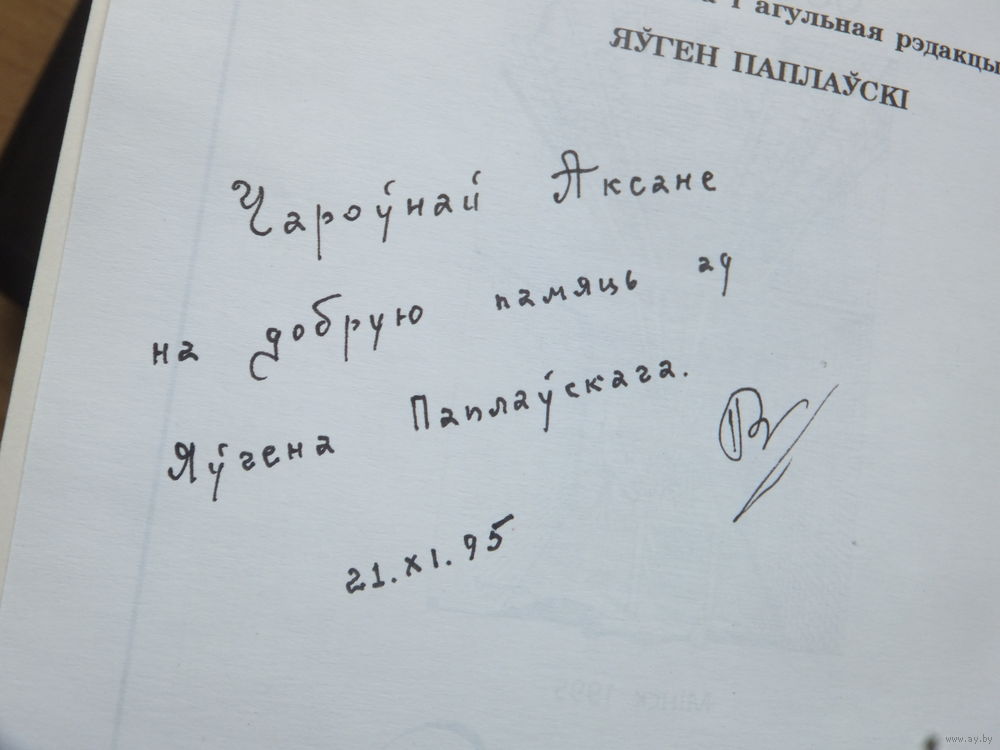 і агульная рэдакцы
ЯЎГЕН ПАПЛАЎСКІ
Чароўнай Аксане
на добрую памяць ад
Яўгена Паплаўскага.
21.XI.95
МІНСК 1995
www.ay.by